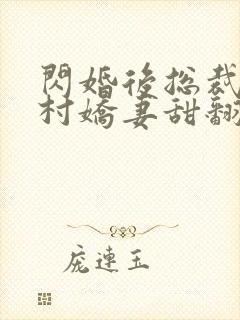 閃婚後總裁
村嬌妻甜翻
庞連玉